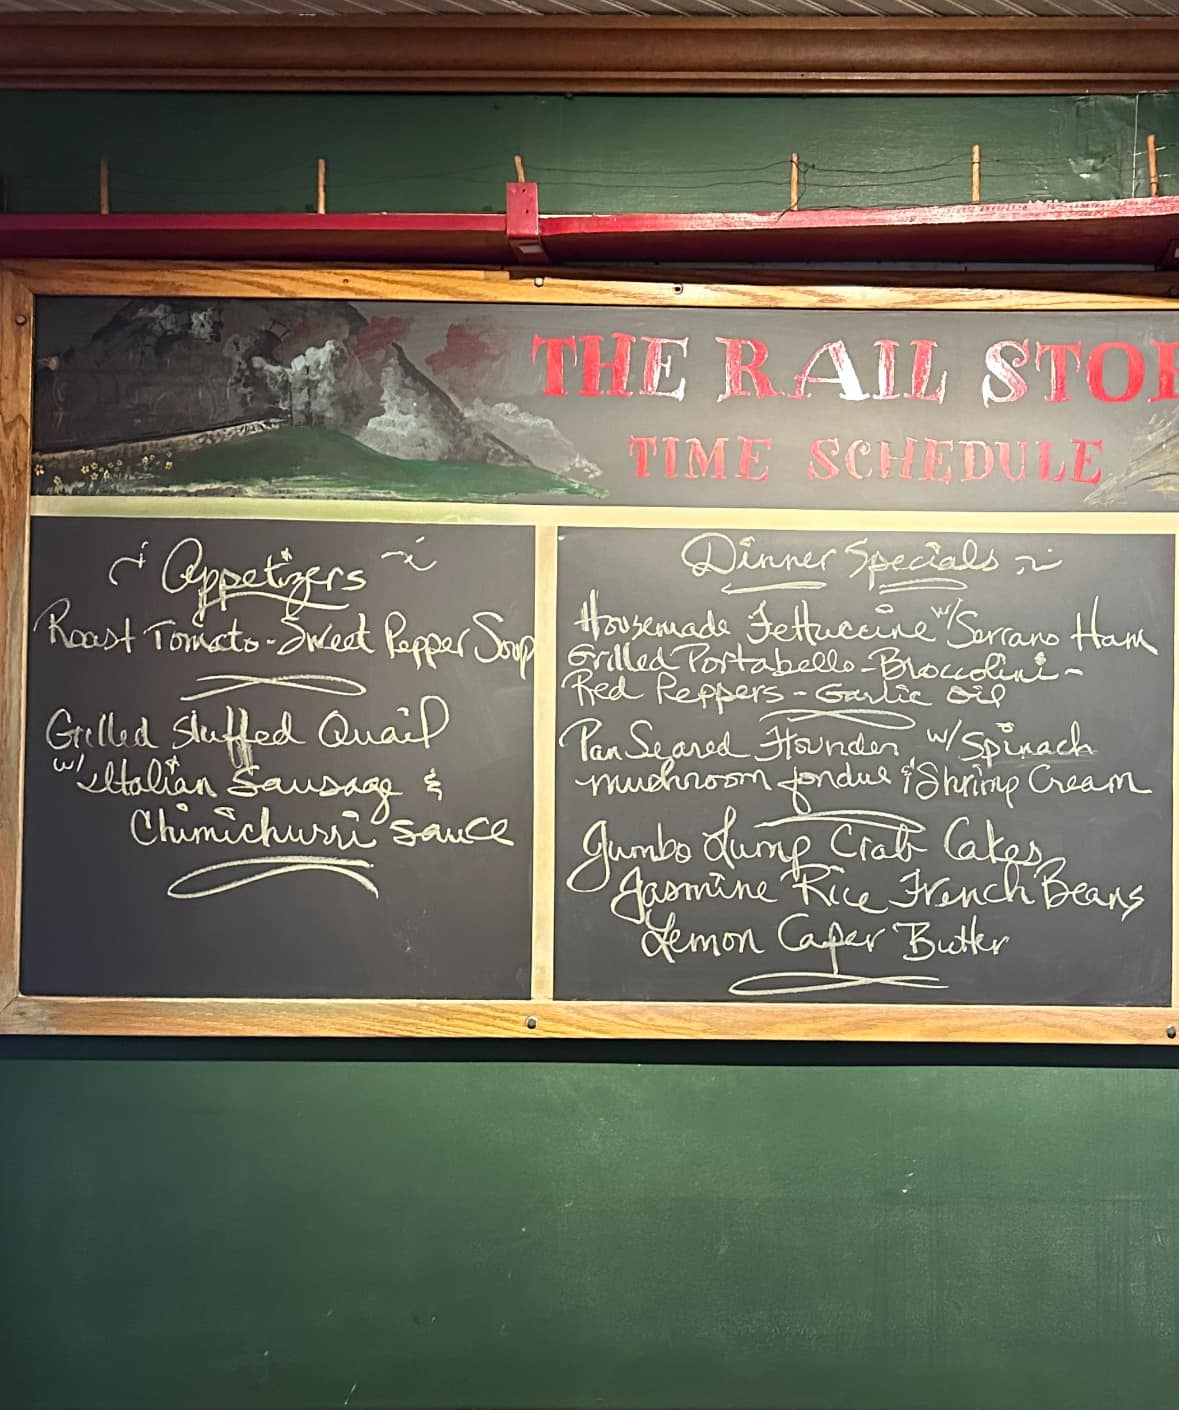 THE RAIL STOP
TIME SCHEDULE
Appetizers
Roast Tomato-Sweet Pepper Soup
Grilled Stuffed Quail
w/ Italian Sausage &
Chimichurri Sauce
Dinner Specials
Housemade Fettuccine w/ Serrano Ham
Grilled Portabello-Broccolini-
Red Peppers - Garlic Oil
Pan Seared Flounder w/ Spinach
mushroom fondue & Shrimp Cream
Jumbo Lump Crab Cakes
Jasmine Rice French Beans
Lemon Caper Butter